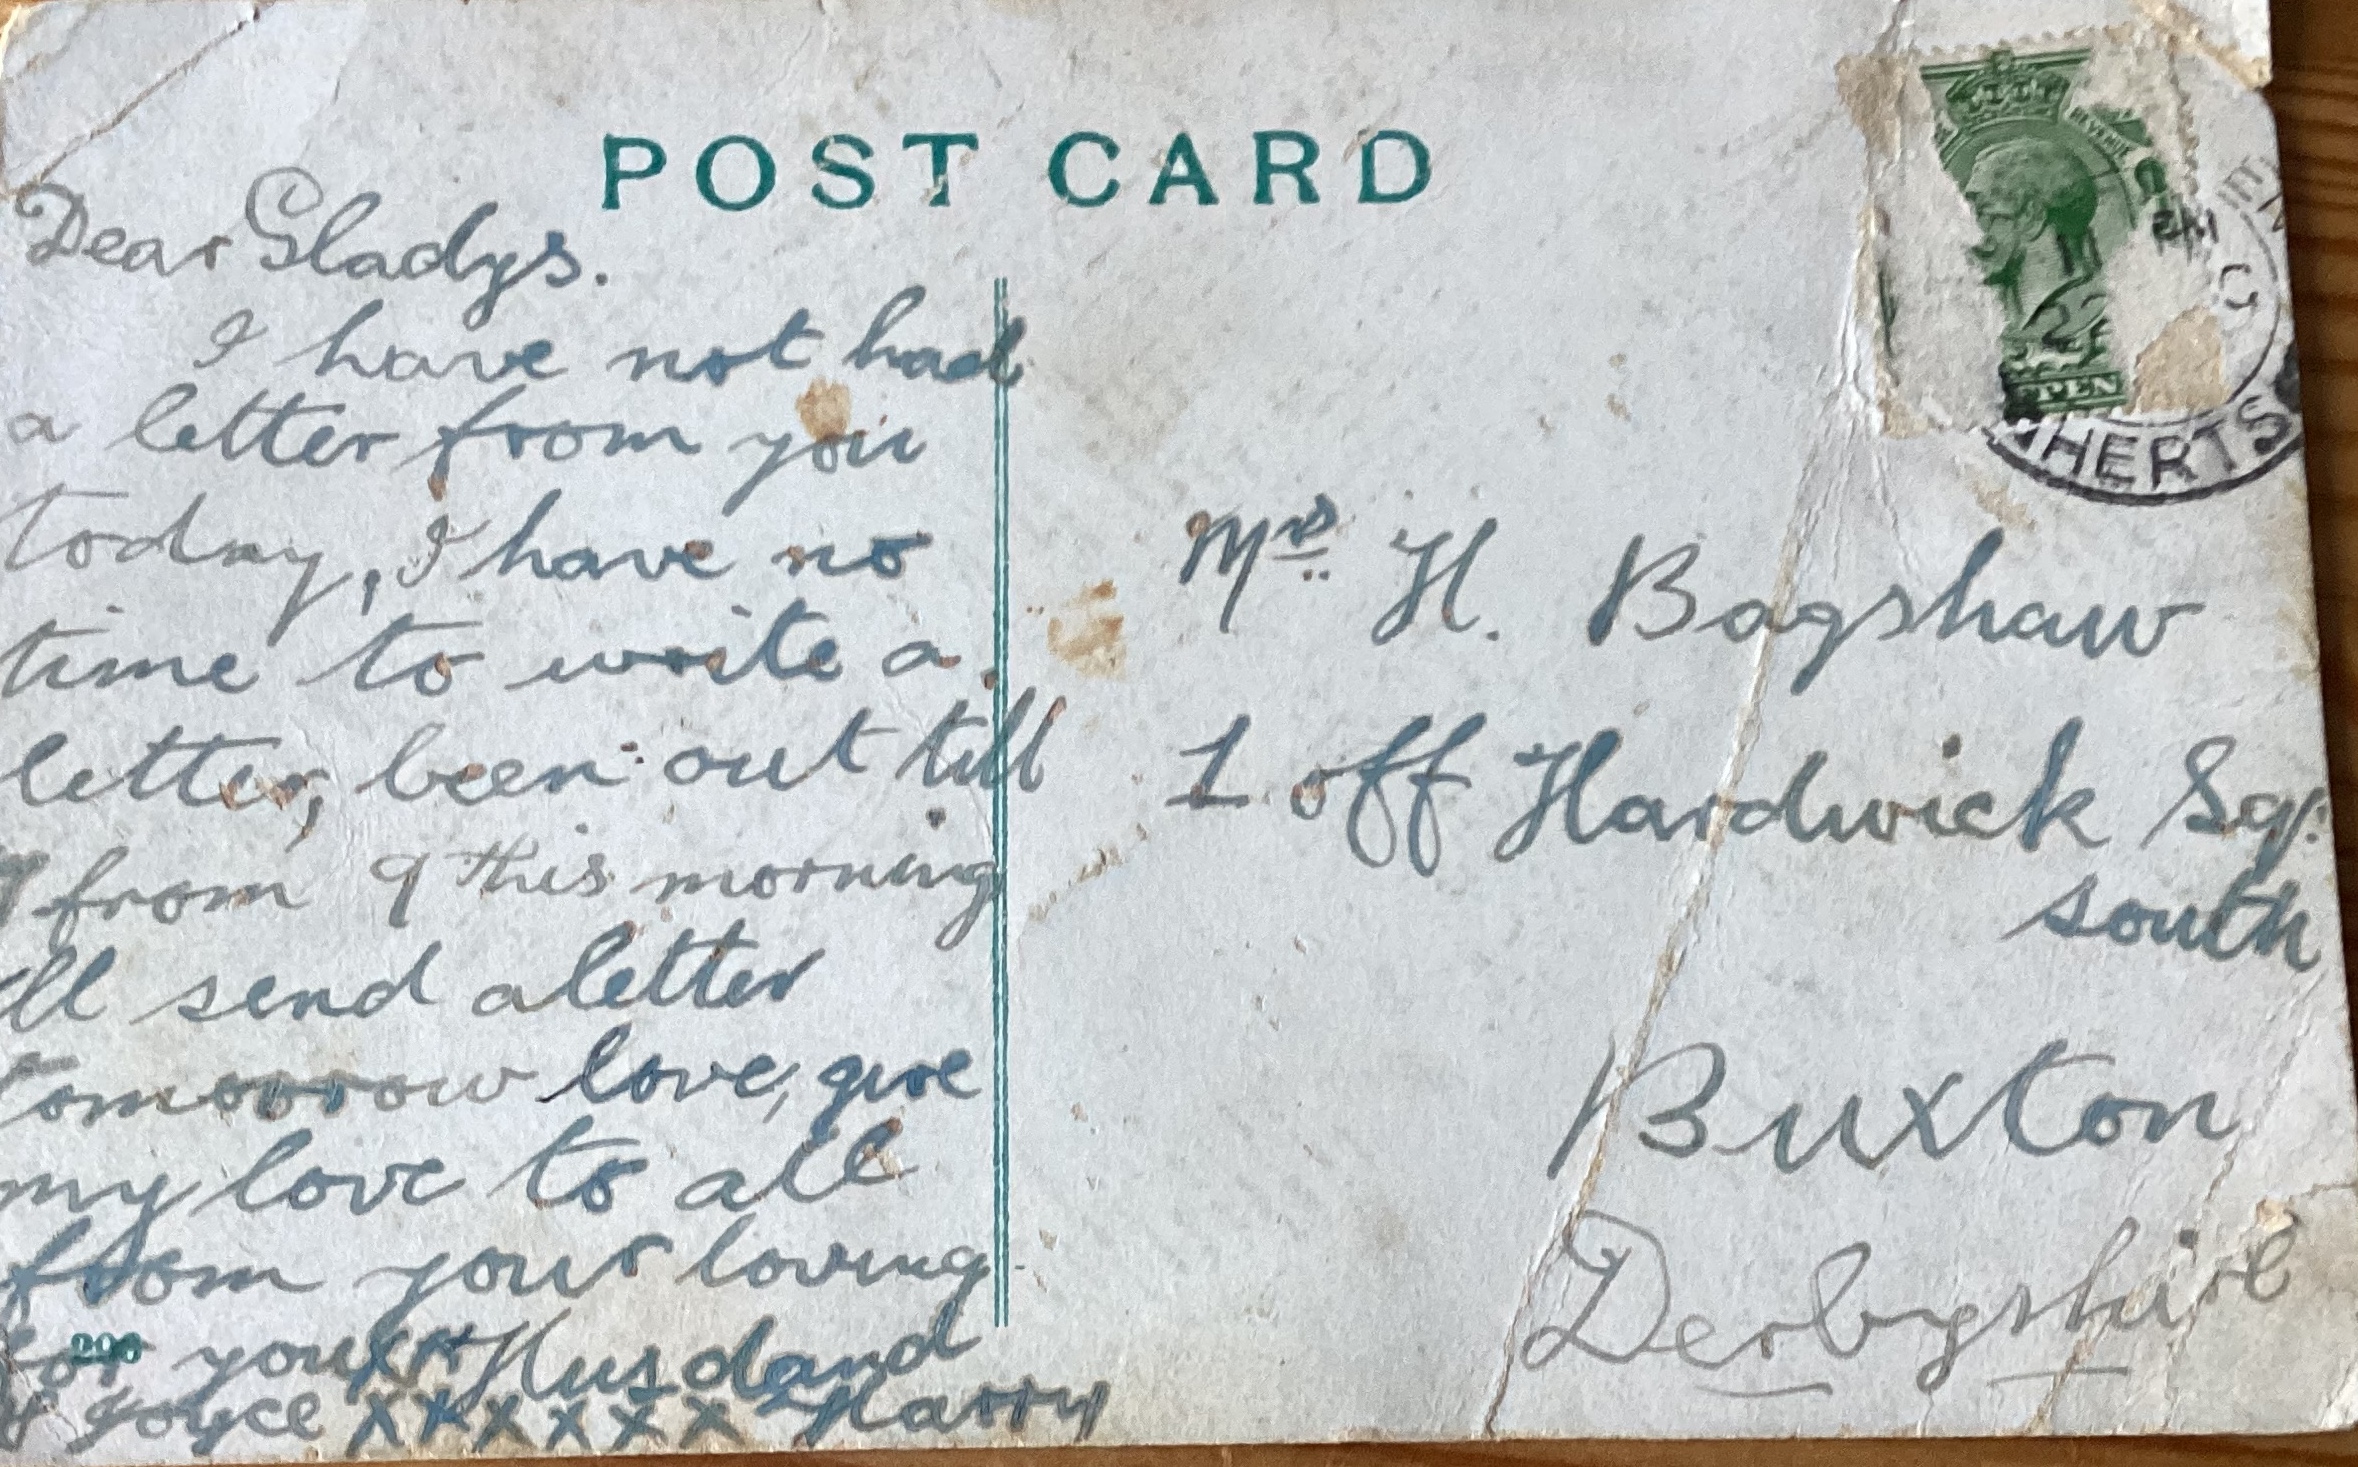 POST CARD
Dear Gladys.
I have not had
a letter from you
today, I have no
time to write a
letter, been out till
7 from 9 this morning
ll send a letter
tomorrow love, give
my love to all
from your loving
for you xxx Husband
& Joyce xxxxxxx Harry
206
Mrs. H. Bagshaw
1 off Hardwick Sq.
south
Buxton
Derbyshire
REVENUE
PEN
HERTS